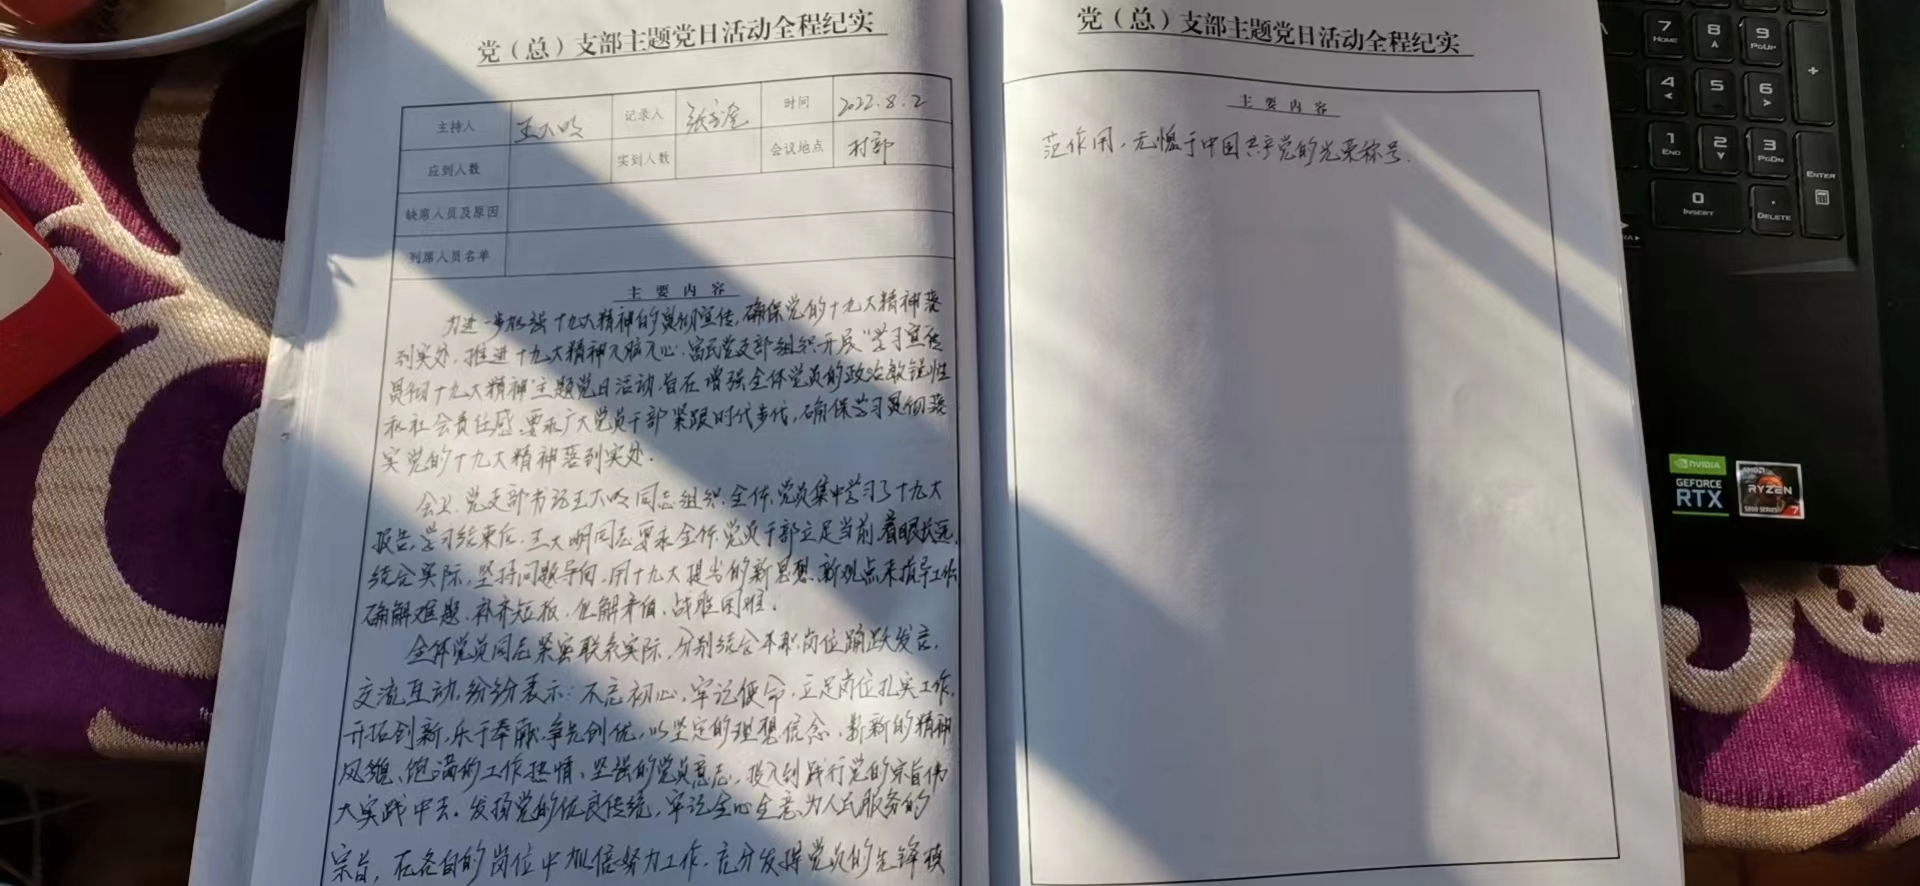 党（总）支部主题党日活动全程纪实
主持人 王大明 记录人 时间 2022.8.2
应到人数 实到人数 会议地点 村部
缺席人员及原因
列席人员名单
主要内容
为进一步加强十九大精神的贯彻宣传，确保党的十九大精神落
到实处，推进十九大精神入脑入心，富民党支部组织开展“学习宣传
贯彻十九大精神”主题党日活动旨在增强全体党员的政治敏锐性
和社会责任感，要求广大党员干部紧跟时代步伐，确保学习贯彻落
实党的十九大精神落到实处。
会上，党支部书记王大明同志组织全体党员集中学习了十九大
报告，学习结束后，王大明同志要求全体党员干部立足当前，着眼长远，
结合实际，坚持问题导向，用十九大提出的新思想、新观点来指导工作
确解难题，补齐短板，化解矛盾，战胜困难。
全体党员同志紧密联系实际，分别结合本职岗位踊跃发言，
交流互动，纷纷表示：不忘初心，牢记使命，立足岗位扎实工作，
开拓创新，乐于奉献，争先创优，以坚定的理想信念、崭新的精神
风貌、饱满的工作热情、坚强的党员意志，投入到践行党的宗旨伟
大实践中去。发扬党的优良传统，牢记全心全意为人民服务的
宗旨，在各自的岗位中加倍努力工作，充分发挥党员的先锋模
党（总）支部主题党日活动全程纪实
主要内容
范作用，无愧于中国共产党的光荣称号。
7 HOME 8 9 PGUP
4 5 6 +
1 END 2 3 PGDN
0 INSERT . DELETE ENTER
NVIDIA
GEFORCE
RTX
AMD
RYZEN
5000 SERIES 7